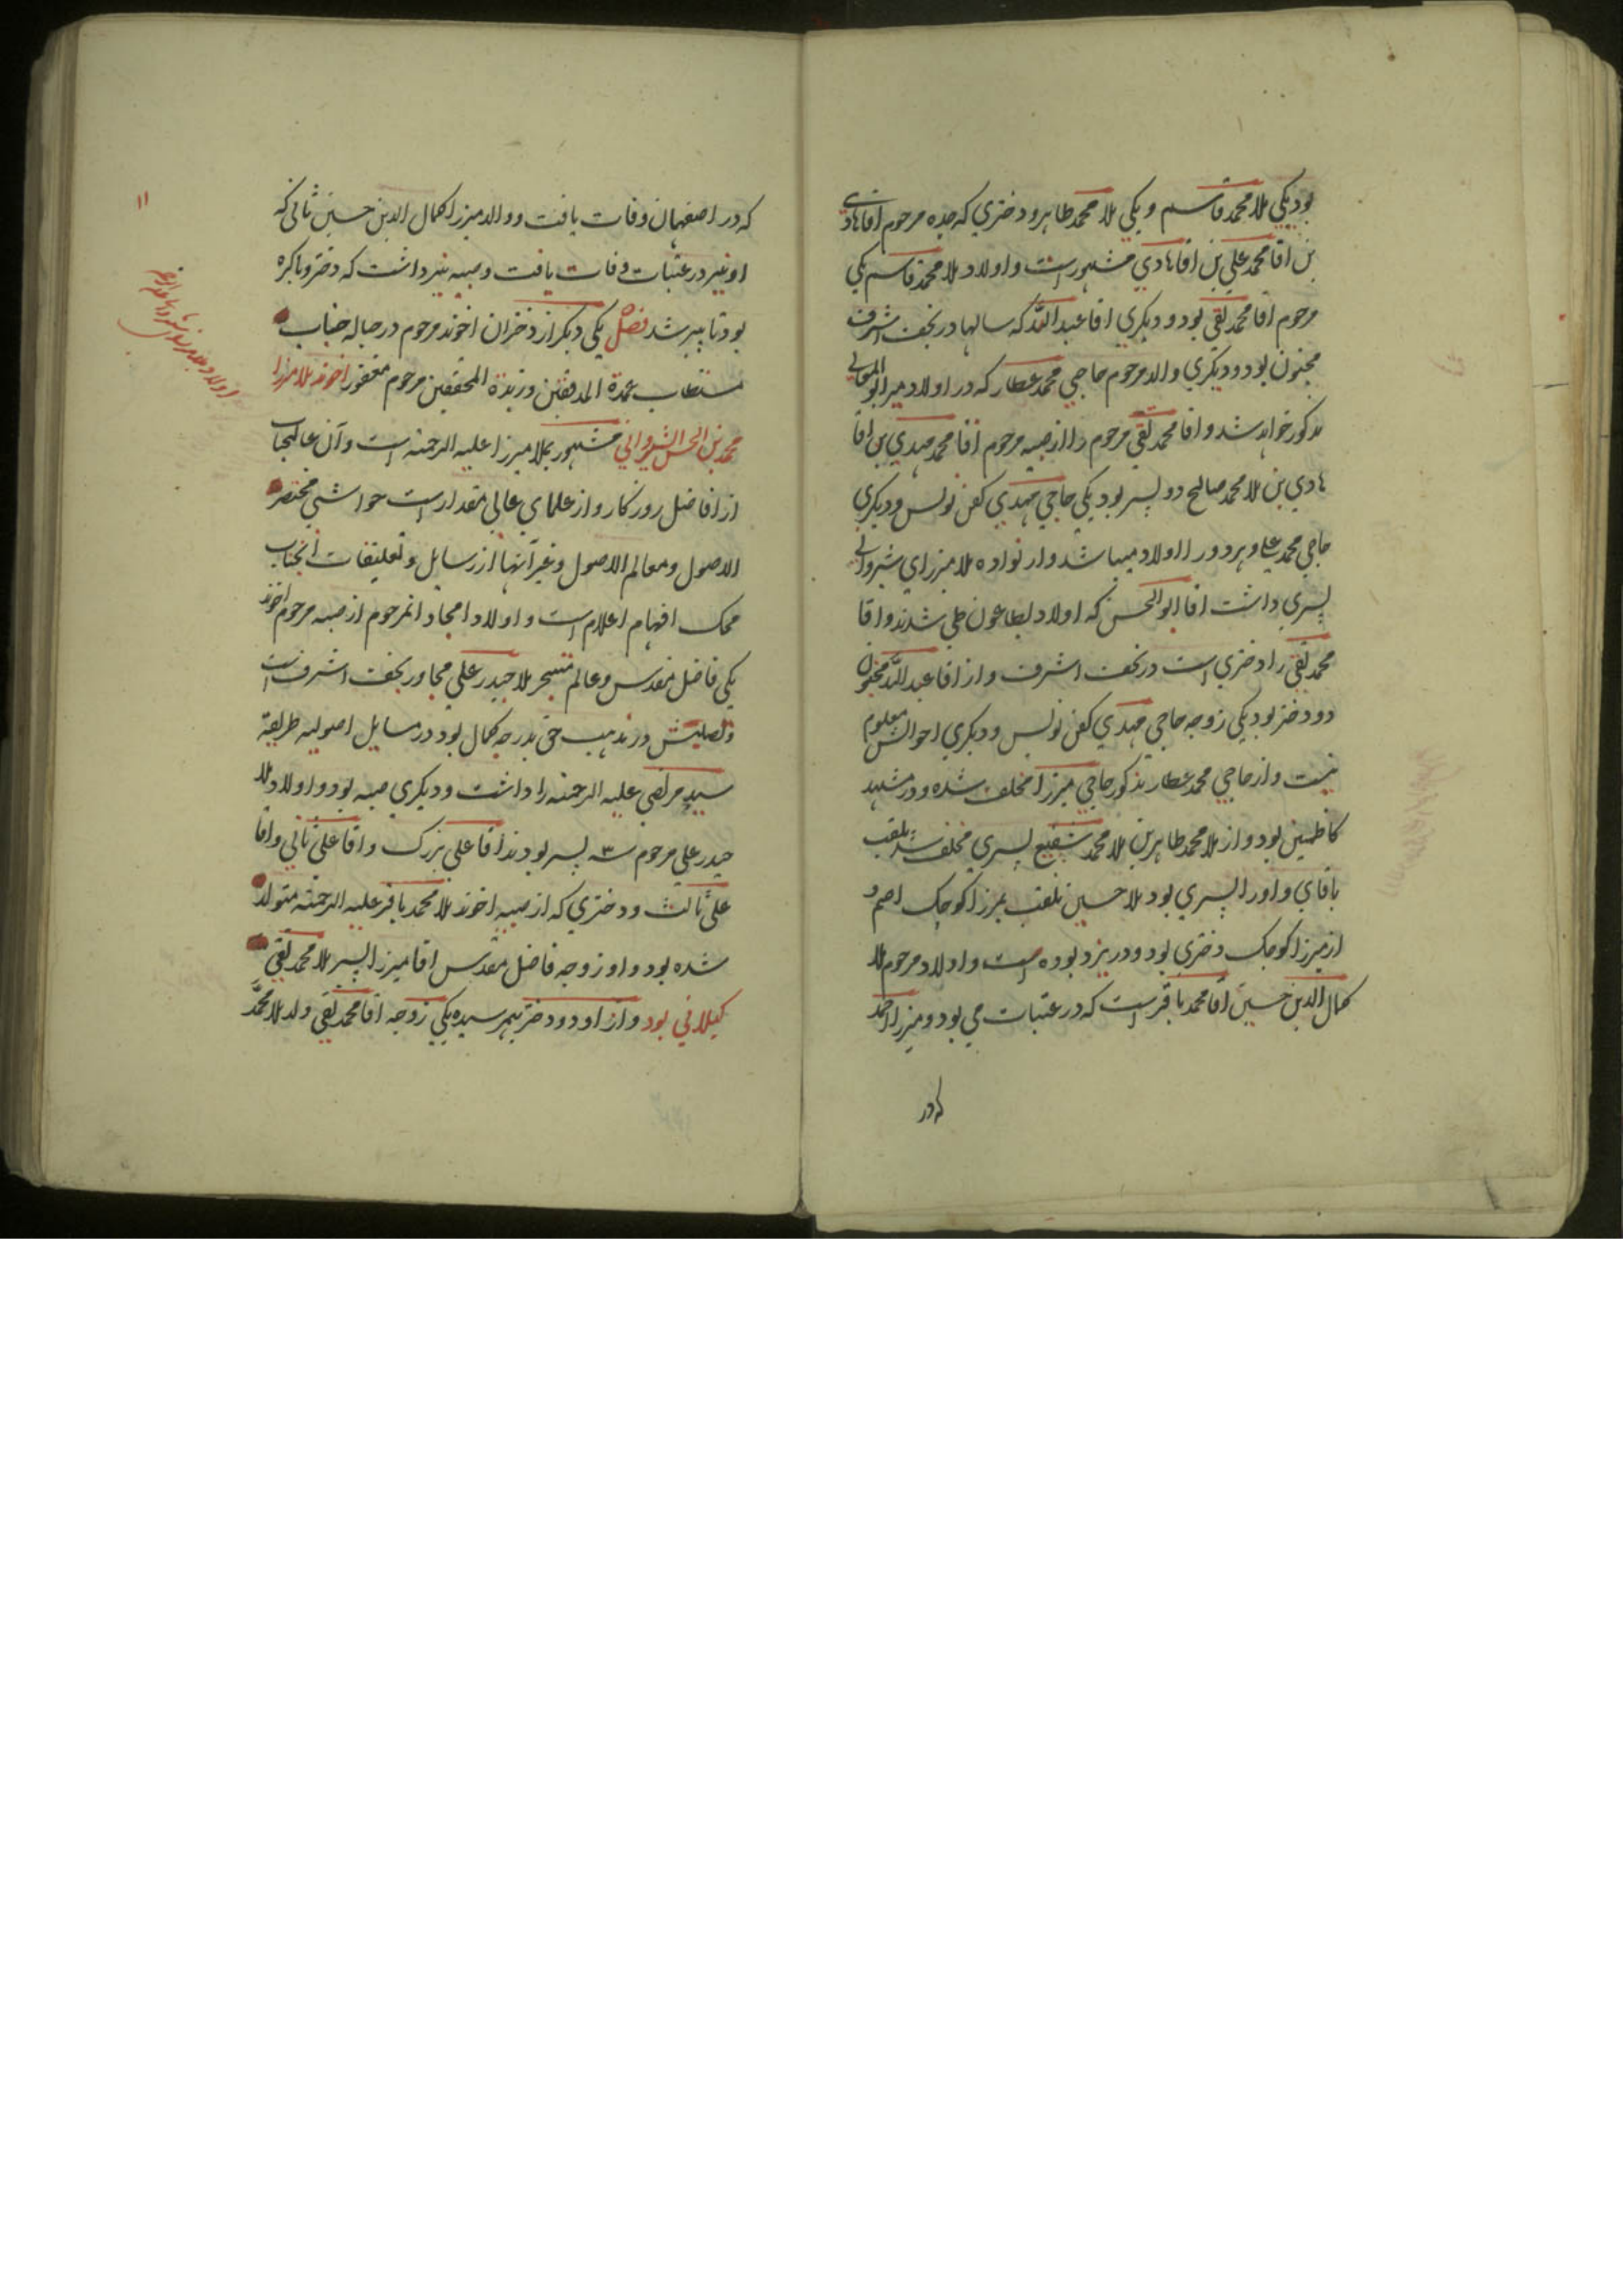 بود یکی ملا محمد قاسم و یکی ملا محمد طاهر و دختری که جده مرحوم اقا هادی
بن اقا محمد علی بن اقا هادی مشهور است و اولاد ملا محمد قاسم یکی
مرحوم اقا محمد تقی بود و دیکری اقا عبد الله که سالها در نجف اشرف
مجنون بود و دیکری والد مرحوم حاجی محمد عطار که در اولاد میر ابو المعالی
مذکور خواهد شد و اقا محمد تقی مرحوم را از صبیه مرحوم اقا محمد مهدی بن اقا
هادی بن ملا محمد صالح دو پسر بود یکی حاجی مهدی کفن نویس و دیکری
حاجی محمد علی و هر دو را اولاد میباشد و از نواده ملا میرزای شیروانی
پسری داشت اقا ابو الحسن که اولاد بطاعون طی شدند و اقا
محمد تقی را دختری است در نجف اشرف و از اقا عبد الله مجنون
دو دختر بود یکی زوجه حاجی مهدی کفن نویس و دیکری احوالش معلوم
نیست و از حاجی محمد عطار مذکور حاجی میرزا مخلف شده و در مشهد
کاظمین بود و از ملا محمد طاهر بن ملا محمد شفیع پسری مخلف شد ملقب
باقای و او را پسری بود ملا حسین ملقب بمیرزا کوچک اصم و
از میرزا کوچک دختری بود و در یزد بوده است و اولاد مرحوم ملا
کمال الدین حسین اقا محمد باقر است که در عتبات می بود و میرزا احمد
که در
۱۱
که در اصفهان وفات یافت و والد میرزا کمال الدین حسین ثانی که
او نیز در عتبات وفات یافت و صبیه نیز داشت که دختر و باکره
بود تا پیر شد فصل یکی دیکر از دختران اخوند مرحوم در حباله جناب
مستطاب عمدة المدققین و زبدة المحققین مرحوم مغفور اخوند ملا میرزا
محمد بن الحسن الشیروانی مشهور بملا میرزا علیه الرحمة است و آن عالیجاب
از افاضل روزکار و از علمای عالی مقدار است حواشی مختصر
الاصول و معالم الاصول و غیر آنها از رسایل و تعلیقات آنجناب
محک افهام اعلام است و اولاد امجاد انمرحوم از صبیه مرحوم اخوند
یکی فاضل مقدس و عالم متبحر ملا حیدر علی مجاور نجف اشرف است
و تصلبش در مذهب حق بدرجه کمال بود در مسایل اصولیه طریقة
سید مرتضی علیه الرحمة را داشت و دیکری صبیه بود و اولاد ملا
حیدر علی مرحوم ۳ پسر بودند اقا علی بزرک و اقا علی ثانی و اقا
علی ثالث و دختری که از صبیه اخوند ملا محمد باقر علیه الرحمة متولد
شده بود و او زوجه فاضل مقدس اقا میرزا پسر ملا محمد تقی
کیلانی بود و از او دو دختر بهم رسیده یکی زوجه اقا محمد تقی ولد ملا محمد